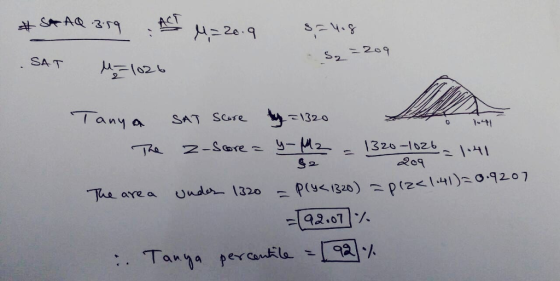 # SAAQ.3.59 : ACT μ₁=20.9 s₁=4.8
. SAT μ₂=1026 s₂=209
Tanya SAT Score y=1320
0 1.41
The Z-Score = (y-μ₂)/s₂ = (1320-1026)/209 = 1.41
The area under 1320 = P(y<1320) = P(z<1.41)=0.9207
= 92.07 %
∴ Tanya percentile = 92 %